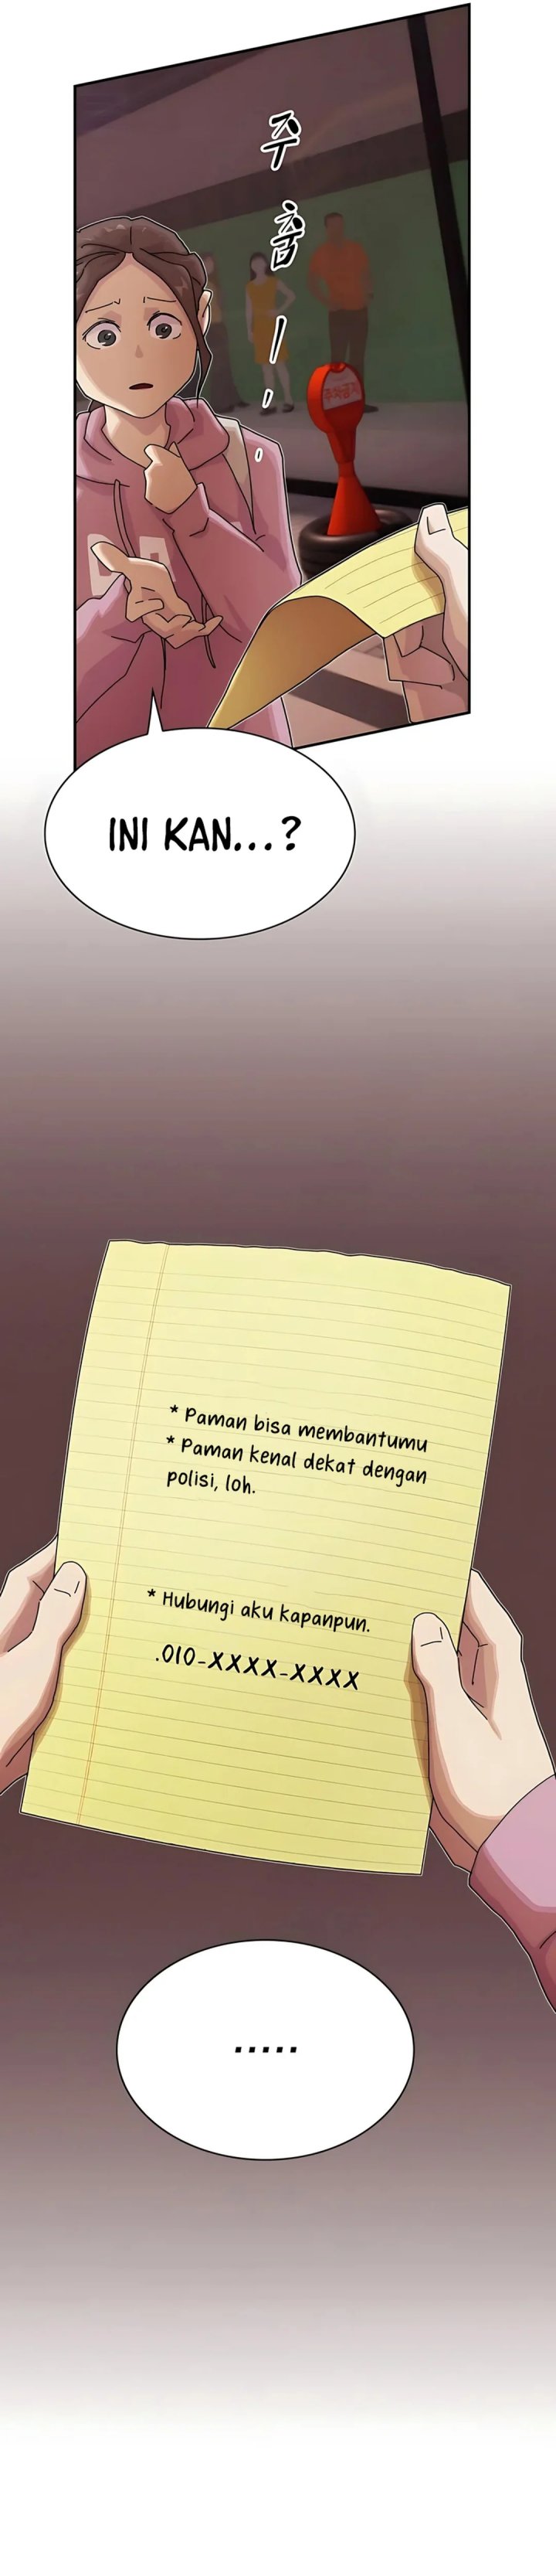 주춤
주차금지
INI KAN...?
* Paman bisa membantumu
* Paman kenal dekat dengan
polisi, loh.
* Hubungi aku kapanpun.
.010-XXXX-XXXX
.....